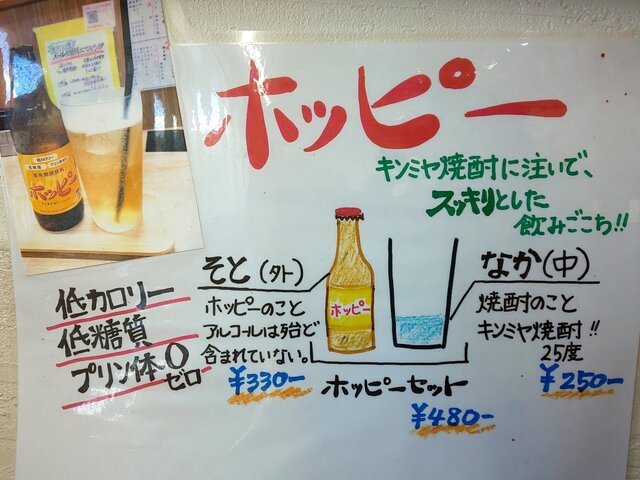 ホッピー
キンミヤ焼酎に注いで、
スッキリとした
飲みごこち!!
低カロリー
低糖質
プリン体0
ゼロ
そと(外)
ホッピーのこと
アルコールは殆ど
含まれていない。
¥330-
ホッピー
ホッピーセット
¥480-
なか(中)
焼酎のこと
キンミヤ焼酎!!
25度
¥250-
ホッピー